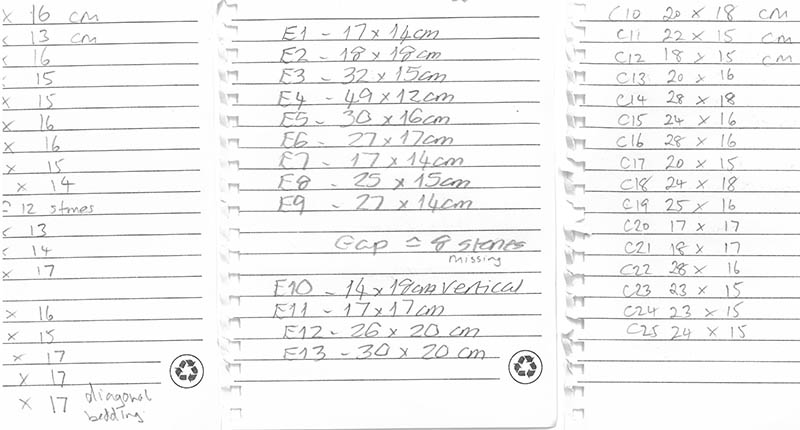 × 16 cm
× 13 cm
× 16
× 15
× 15
× 16
× 16
× 15
× 14
≃ 12 stones
× 13
× 14
× 17
× 16
× 15
× 17
× 17
× 17 diagonal
bedding
E1 - 17 × 14cm
E2 - 18 × 18cm
E3 - 32 × 15cm
E4 - 49 × 12cm
E5 - 30 × 16cm
E6 - 27 × 17cm
E7 - 17 × 14cm
E8 - 25 × 15cm
E9 - 27 × 14cm
Gap ≃ 8 stones
missing
E10 - 14 × 19cm vertical
E11 - 17 × 17cm
E12 - 26 × 20 cm
E13 - 30 × 20 cm
C10 20 × 18 cm
C11 22 × 15 cm
C12 18 × 15 cm
C13 20 × 16
C14 28 × 18
C15 24 × 16
C16 28 × 16
C17 20 × 15
C18 24 × 18
C19 25 × 16
C20 17 × 17
C21 18 × 17
C22 28 × 16
C23 23 × 15
C24 23 × 15
C25 24 × 15